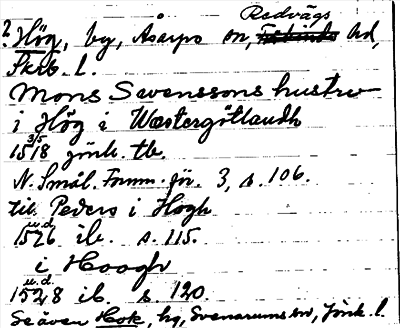 Redvägs
? Hög, by, Åsarps sn, hd,
Skrb. l.
Mons Swenssons hustrv
i Hög i Wæstergötlandh
3/5
1518 jönk. tb.
N. Smål. Fornm. för. 3, s. 106.
til Peders i Hogh
u.d.
1526 ib. s. 115.
i Hoogh
u.d.
1528 ib. s. 120.
Se även Hok, by, Svenarums sn, Jönk. l.